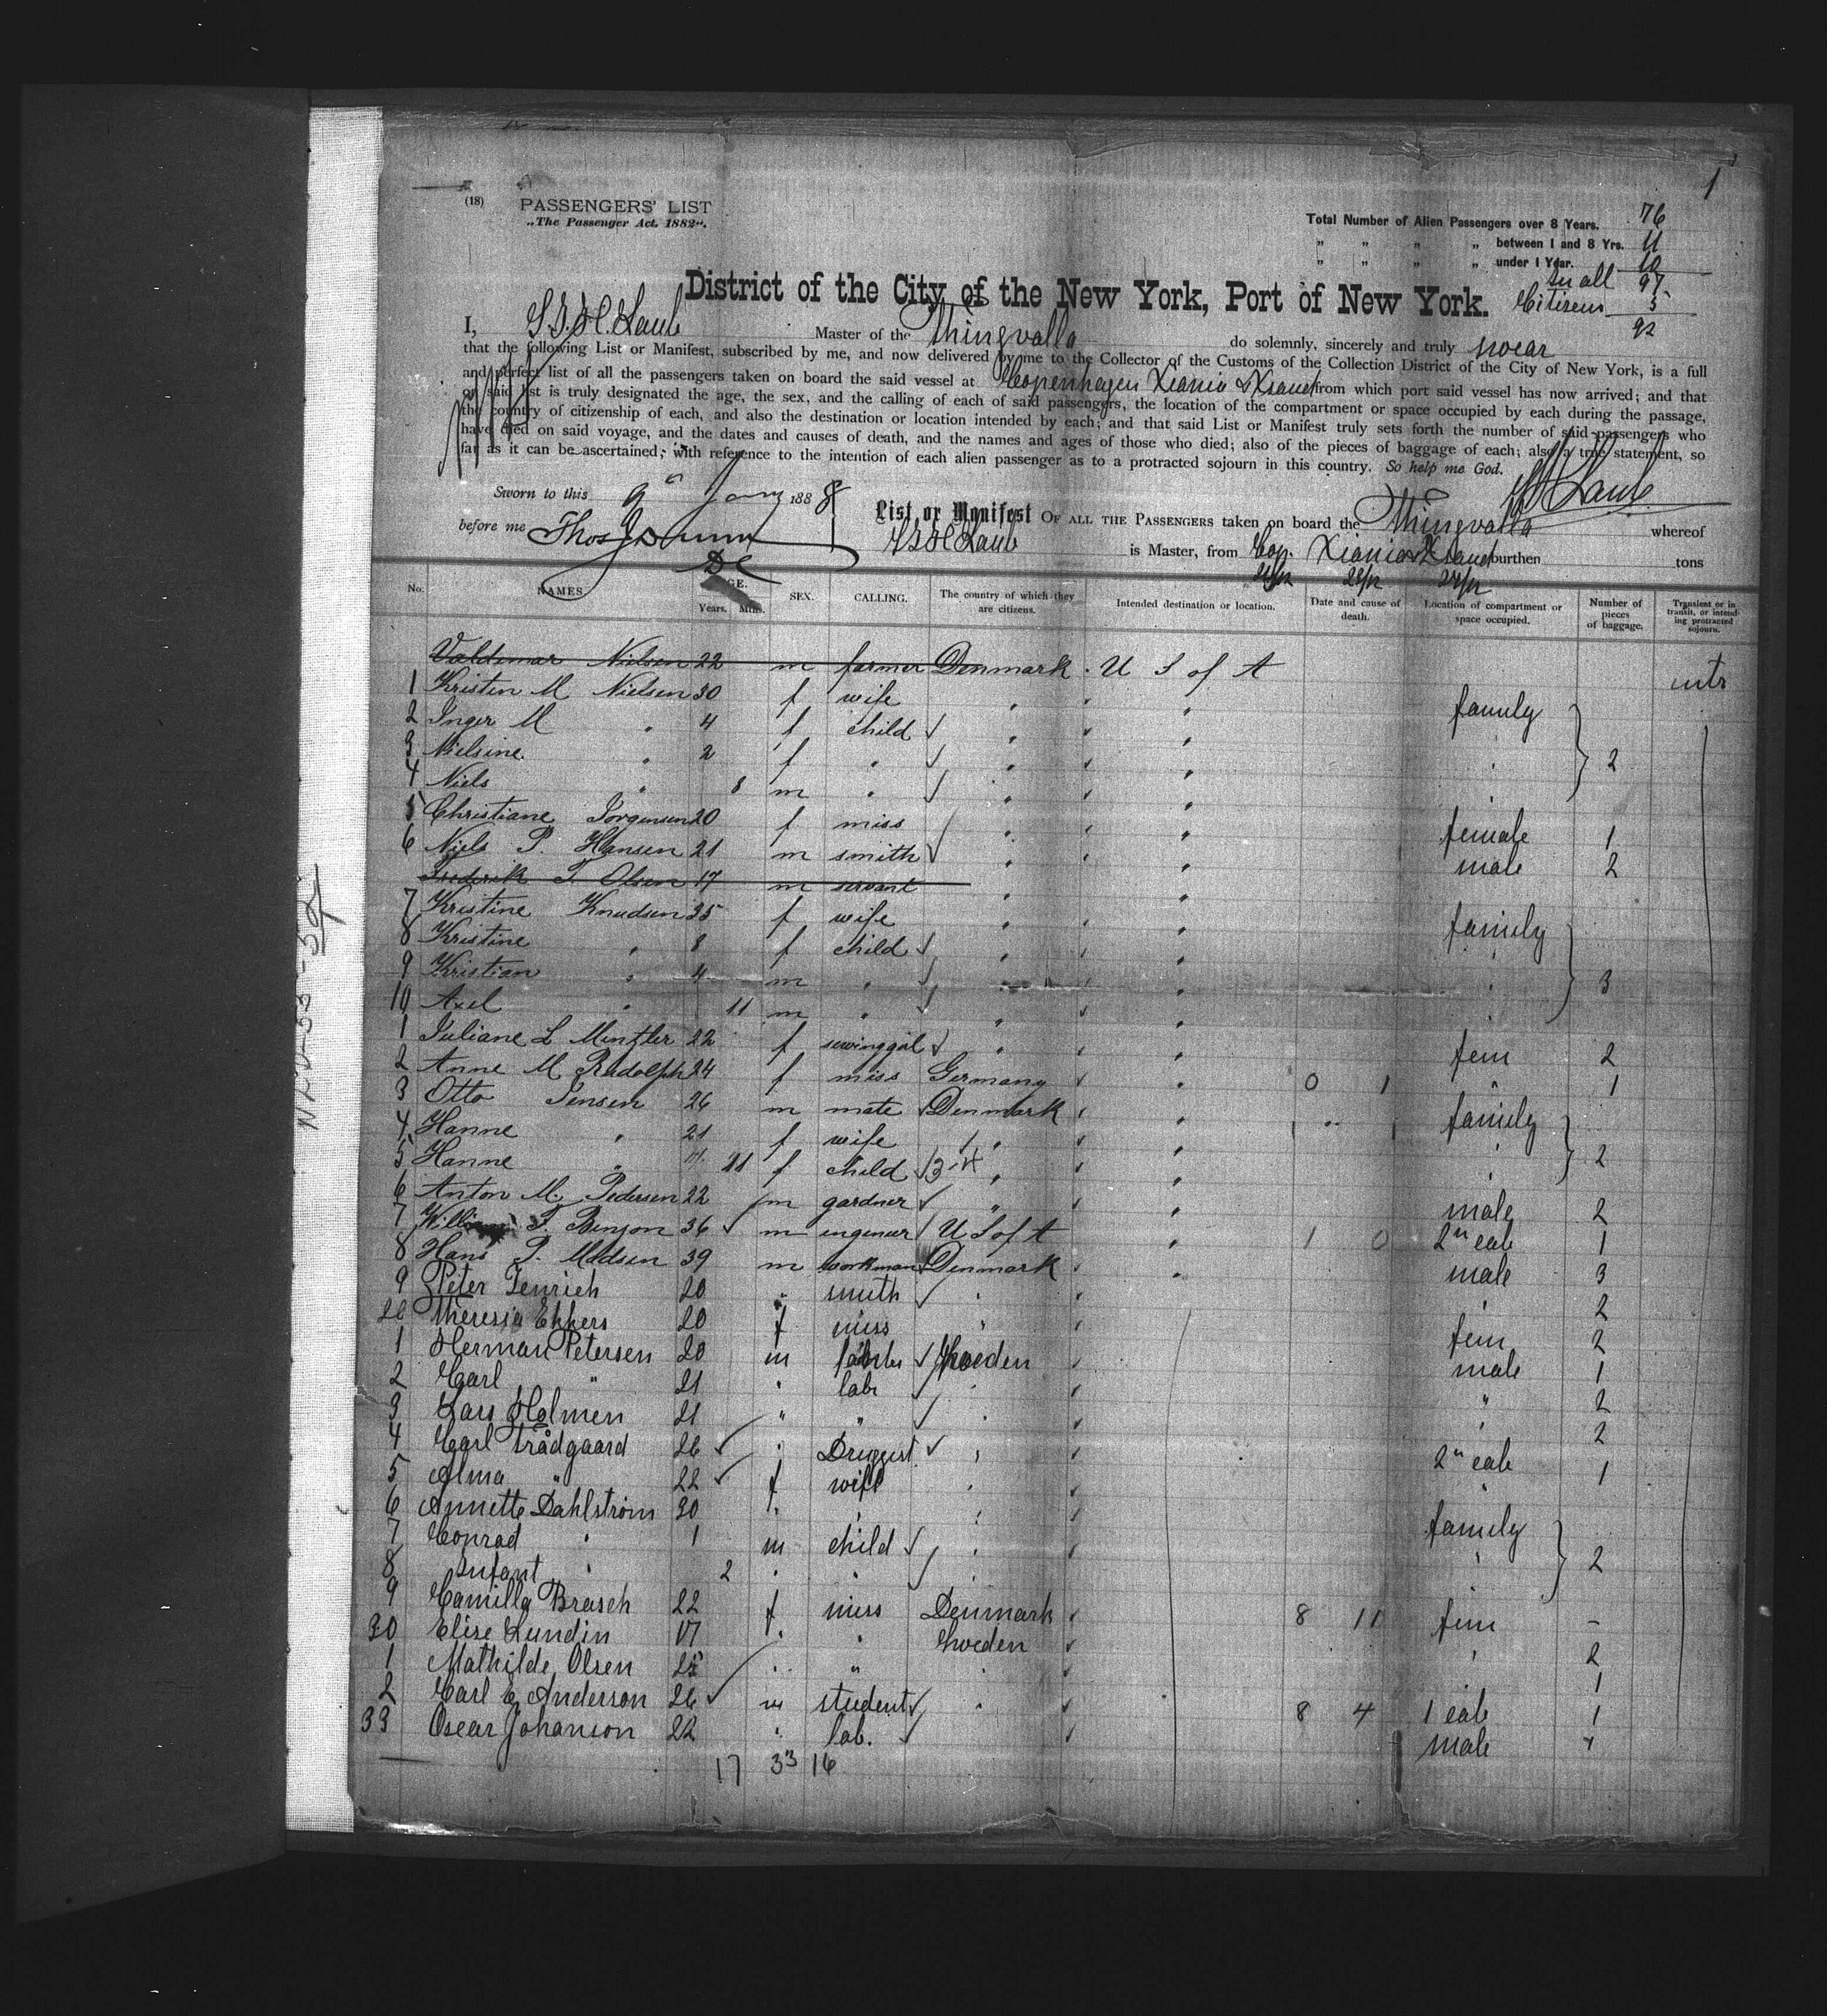 1
(18) PASSENGERS' LIST
„The Passenger Act. 1882".
Total Number of Alien Passengers over 8 Years. 76
„ „ „ „ between 1 and 8 Yrs. 11
„ „ „ „ under 1 Year. 10
In all 97
Citizens 5
92
District of the City of the New York, Port of New York.
I, S.F.H. Laub Master of the Thingvalla do solemnly, sincerely and truly swear
that the following List or Manifest, subscribed by me, and now delivered by me to the Collector of the Customs of the Collection District of the City of New York, is a full
and perfect list of all the passengers taken on board the said vessel at Copenhagen Xiania & Xsand from which port said vessel has now arrived; and that
on said list is truly designated the age, the sex, and the calling of each of said passengers, the location of the compartment or space occupied by each during the passage,
the country of citizenship of each, and also the destination or location intended by each; and that said List or Manifest truly sets forth the number of said passengers who
have died on said voyage, and the dates and causes of death, and the names and ages of those who died; also of the pieces of baggage of each; also a true statement, so
far as it can be ascertained; with reference to the intention of each alien passenger as to a protracted sojourn in this country. So help me God.
Laub
Sworn to this 9 Jany 1888
before me Thos J Dunn
DC
List or Manifest OF ALL THE PASSENGERS taken on board the Thingvalla whereof
Laub is Master, from Cop. Xiania & Xsand burthen tons
21/12 22/12 24/12
No. NAMES. AGE. Years. Mths. SEX. CALLING. The country of which they are citizens. Intended destination or location. Date and cause of death. Location of compartment or space occupied. Number of pieces of baggage. Transient or in transit, or intending protracted sojourn.
Valdemar Nielsen 22 m farmer Denmark U S of A
1 Kristen M Nielsen 30 f wife " " family
2 Inger M " 4 f child " " "
3 Nielsine " 2 f " " " " 2
4 Niels " 8 m " " " "
5 Christiane Jorgensen 20 f miss " " female 1
6 Niels P. Hansen 21 m smith " " male 2
Frederik T. Olsen 17 m servant " "
7 Kristine Knudsen 35 f wife " " family
8 Kristine " 8 f child " " "
9 Kristian " 4 m " " " " 3
10 Axel " 11 m " " " "
1 Juliane L Mintzler 22 f sewinggal " " fem 2
2 Anne M Rudolph 24 f miss Germany " 0 1 " 1
3 Otto Jensen 26 m mate Denmark " family
4 Hanne " 21 f wife " " "
5 Hanne " 11 f child 3-4 " " " 2
6 Anton M. Pedersen 22 m gardner " " male 2
7 William T. Benzon 36 m engeneer U S of A " 1 0 2n cab 1
8 Hans P. Madsen 39 m workman Denmark " male 3
9 Peter Jenrich 20 " smith " " 2
20 Theresia Ehkers 20 f miss " fem 2
1 Herman Petersen 20 m Sweden male 1
2 Carl " 21 " labr " " 2
3 Lars Holmen 21 " " " " 2
4 Carl Trådgaard 26 " Druggist " 2n cab 1
5 Alma " 22 f wife " "
6 Annette Dahlström 30 " " " family
7 Conrad " 1 m child " " 2
8 Infant " 2 " " "
9 Camilla Brasch 22 f miss Denmark 8 11 fem -
30 Elise Lundin 17 " " Sweden " 2
1 Mathilde Olsen 25 " " " 1
2 Carl E Anderson 26 m student " 8 4 1 cab 1
33 Oscar Johanson 22 " lab. male "
17 33 16